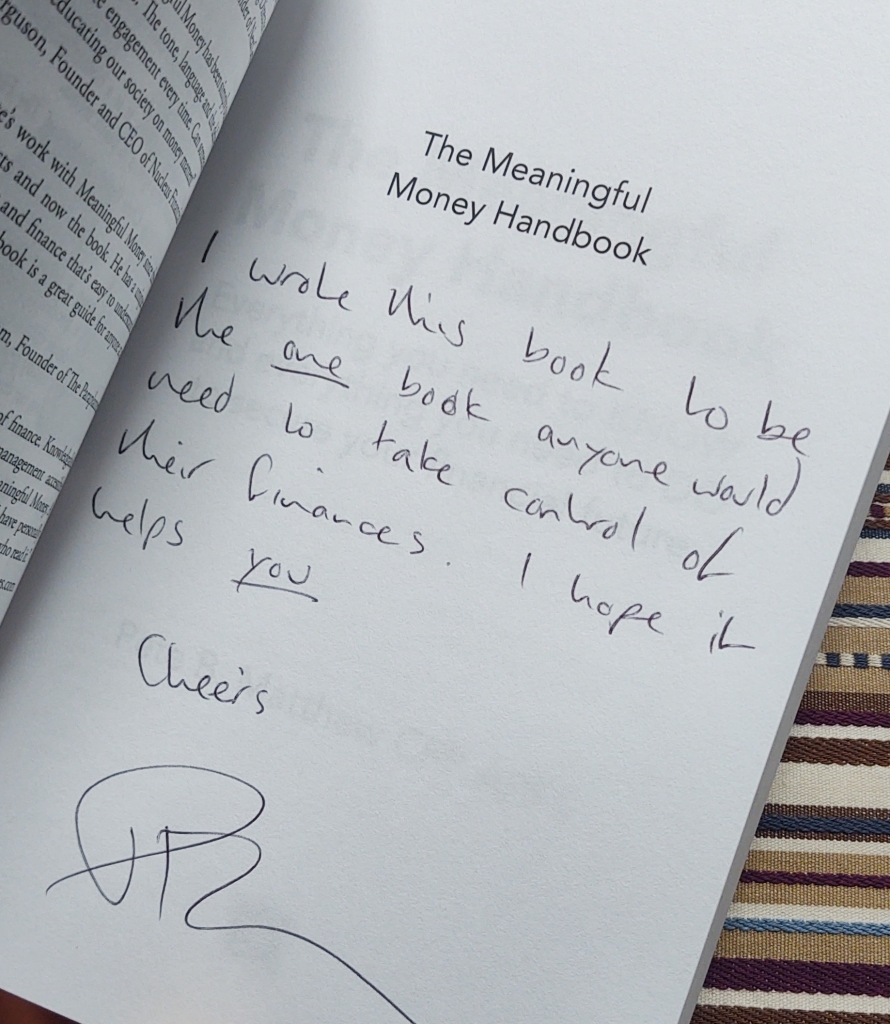 Money has been
The tone, language and
engagement every time.
educating our society on money
Founder and CEO of Nucleus
work with Meaningful Money
and now the book. He has a
and finance that's easy to
book is a great guide for
Founder of The
of finance.
management
Money
have
who read it
The Meaningful
Money Handbook
I wrote this book to be
the one book anyone would
need to take control of
their finances. I hope it
helps you
Cheers